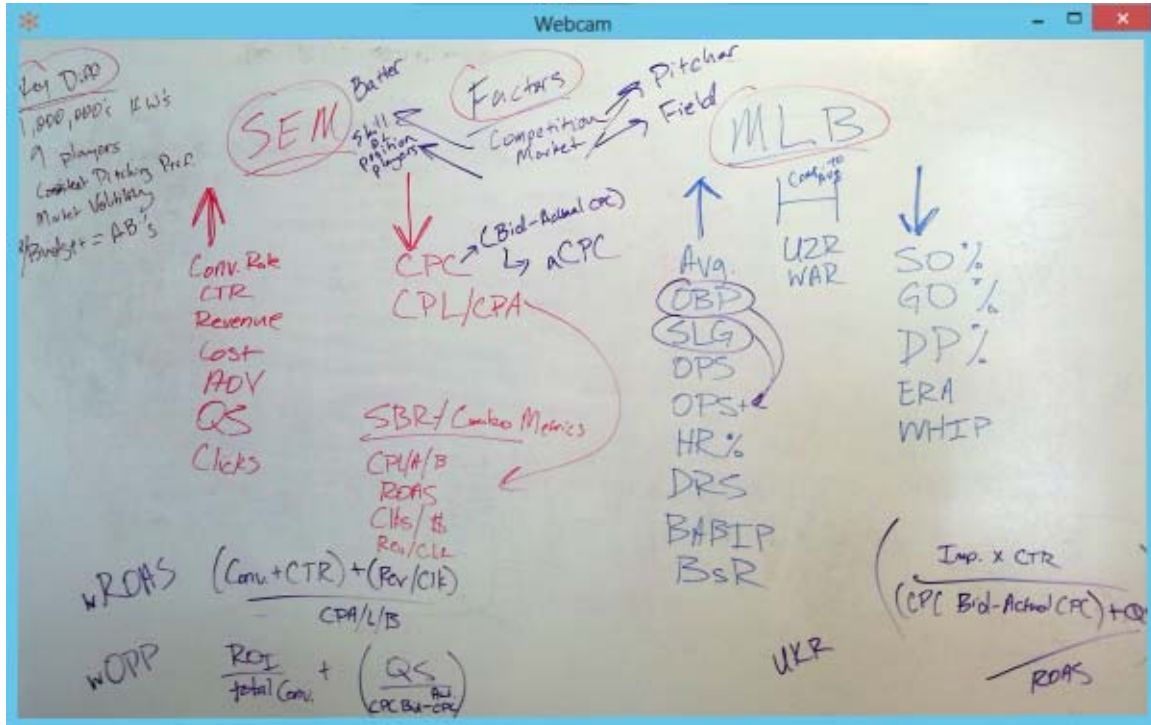 Webcam
Key Diff
1,000,000's KW's
9 players
Consistent Pitching Perf.
Market Volatility
Budget = AB's
SEM
Batter
Skill
of
position
players
Factors
Competition
Market
Pitcher
Field
MLB
Conv. Rate
CTR
Revenue
Cost
AOV
QS
Clicks
CPC
(Bid-Actual CPC)
aCPC
CPL/CPA
SBR/Combo Metrics
CPL/A/B
ROAS
Clks/$
Rev/Clk
Avg.
OBP
SLG
OPS
OPS+
HR%
DRS
BABIP
BsR
UZR
WAR
SO%
GO%
DP%
ERA
WHIP
wROAS
(Conv.+CTR)+(Rev/Clk)
CPA/L/B
wOPP
ROI
total Conv.
+
QS
CPC Bid-CPC
UKR
Imp. x CTR
(CPC Bid-Actual CPC)+
ROAS